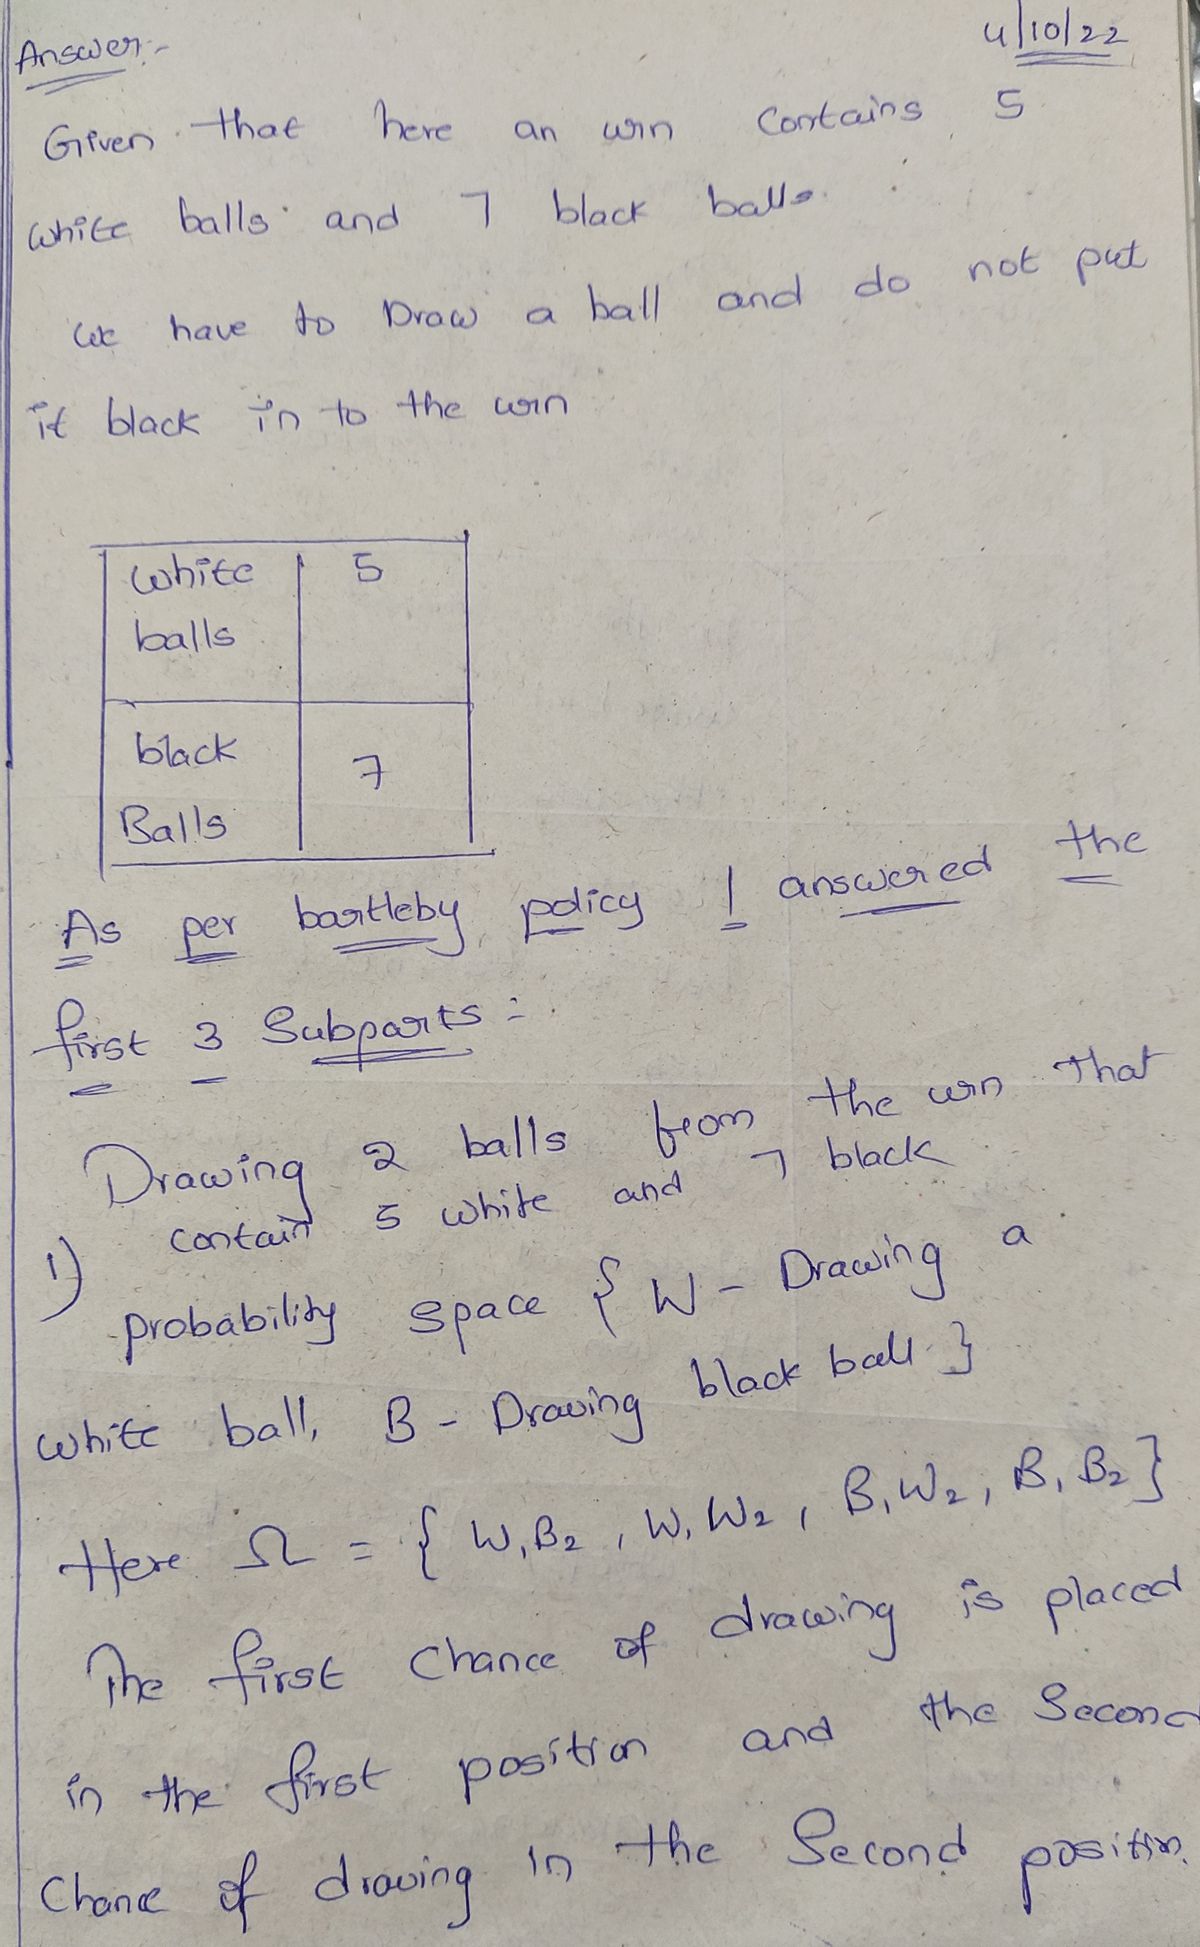 Answer:-
4/10/22
Given that here an urn contains 5
white balls and 7 black balls.
we have to Draw a ball and do not put
it black in to the urn
white 5
balls
black 7
Balls
As per bartleby policy I answered the
first 3 Subparts:
Drawing 2 balls from the urn that
contain 5 white and 7 black
1)
probability space { W - Drawing a
white ball, B - Drawing black ball }
Here Ω = { W1B2, W1W2, B1W2, B1B2 }
The first chance of drawing is placed
in the first position and the Second
Chance of drawing in the Second position.